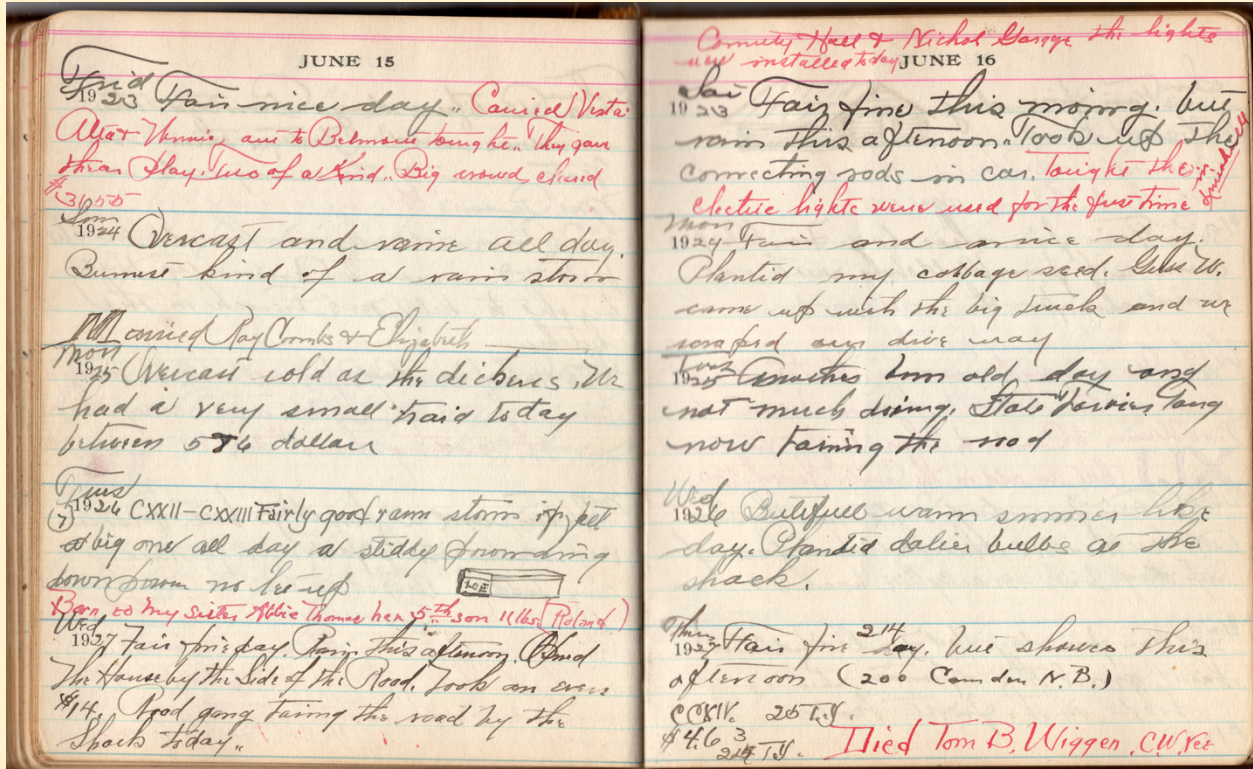 JUNE 15
Frid
1923 Fair nice day.. Carried Vesta
Alta & Vennie, out to Belmont tonight.. They gave
thear Play. Two of a Kind.. Big crowd, cleared
$36 55
Sun
1924 Overcast and raine all day.
kind of a rain storm
Married Ray Combs & Elizabeth
Mon
1925 Overcast cold as the dickens. We
had a very small traid today
between 5 & 6 dollars
Tues
1926 CXXII-CXXIII Fairly good rain storm
(7) a big one all day a stiddy
down no let up
ICE
Born to my sister Abbie Thomas her 5th son 11 lbs (Roland)
Wed
1927 Fair fine day. Rain this afternoon. Opned
The House by the Side of the Road. Took an even
$14. Road gang taring the road by the
Shack today..
Comuty Hall & Nichol Garage the lights
was installed today
JUNE 16
Sat
1923 Fair fine this morng. but
rain this afternoon. Took up the
connecting rods in car. Tonight the
electric lights were used for the first time
Mon
1924 Fair and a nice day.
Plantid my cabbage seed. W.
came up with the big truck and we
scraped our drive way
Tues
1925 old day and
not much doing. State Gang
now taring the rod
Wed
1926 Butifull warm summer like
day. Plandid dalier bulbs at the
shack.
Thur
1927 Fair fine day. but showes this
214
afternoon (200 Camden N.B.)
CCXIV. 25 T.Y.
$4.63
214 T.Y. Died Tom B. Wiggen, C.W. Vet